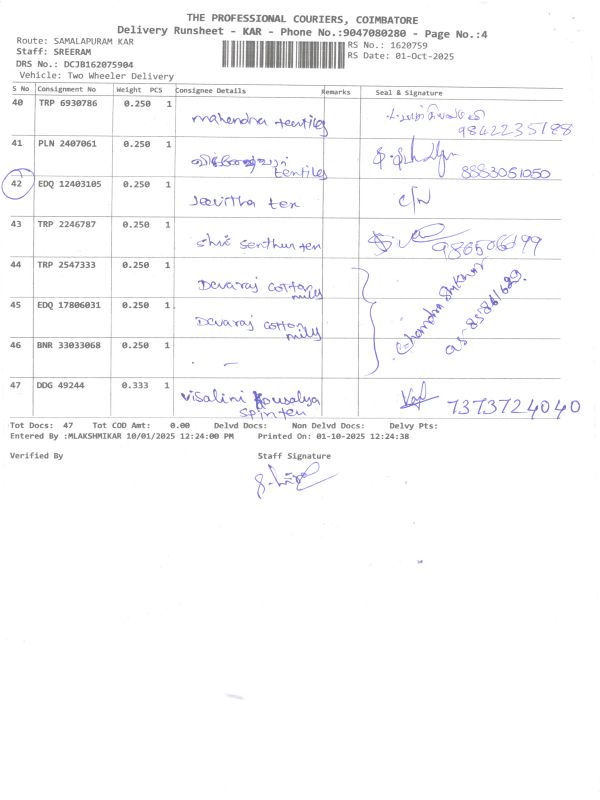 THE PROFESSIONAL COURIERS, COIMBATORE
Delivery Runsheet - KAR - Phone No.:9047080280 - Page No.:4
Route: SAMALAPURAM KAR
RS No.: 1620759
Staff: SREERAM
RS Date: 01-Oct-2025
DRS No.: DCJB162075904
Vehicle: Two Wheeler Delivery
S No Consignment No Weight PCS Consignee Details Remarks Seal & Signature
40 TRP 6930786 0.250 1
mahendra textiles
9842235788
41 PLN 2407061 0.250 1
textiles
8883051050
42 EDQ 12403105 0.250 1
Jeevitha tex
43 TRP 2246787 0.250 1
Shri Senthur tex
44 TRP 2547333 0.250 1
Devaraj cotton mills
45 EDQ 17806031 0.250 1
Devaraj cotton mills
46 BNR 33033068 0.250 1
. -
47 DDG 49244 0.333 1
Visalini Kousalya
Spintex
7373724040
Tot Docs: 47 Tot COD Amt: 0.00 Delvd Docs: Non Delvd Docs: Delvy Pts:
Entered By :MLAKSHMIKAR 10/01/2025 12:24:00 PM Printed On: 01-10-2025 12:24:38
Verified By Staff Signature